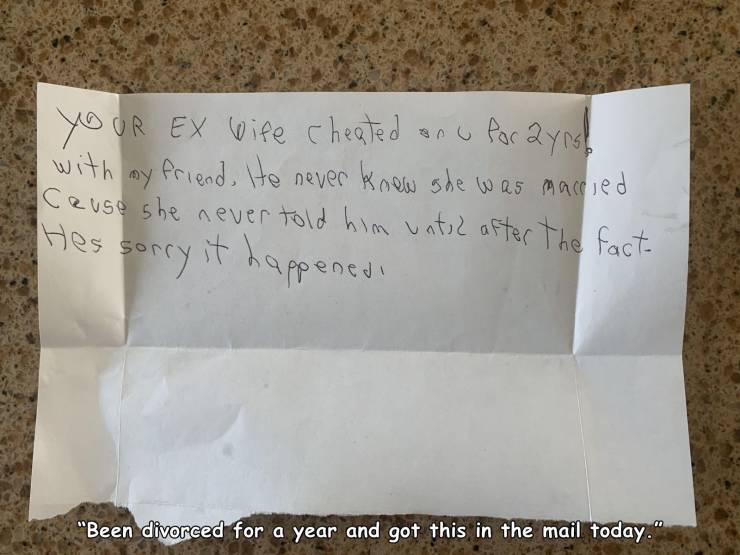 YOUR EX Wife cheated on u for 2yrs!
with my friend. He never knew she was married
Cause she never told him until after the fact.
Hes sorry it happened.
"Been divorced for a year and got this in the mail today."